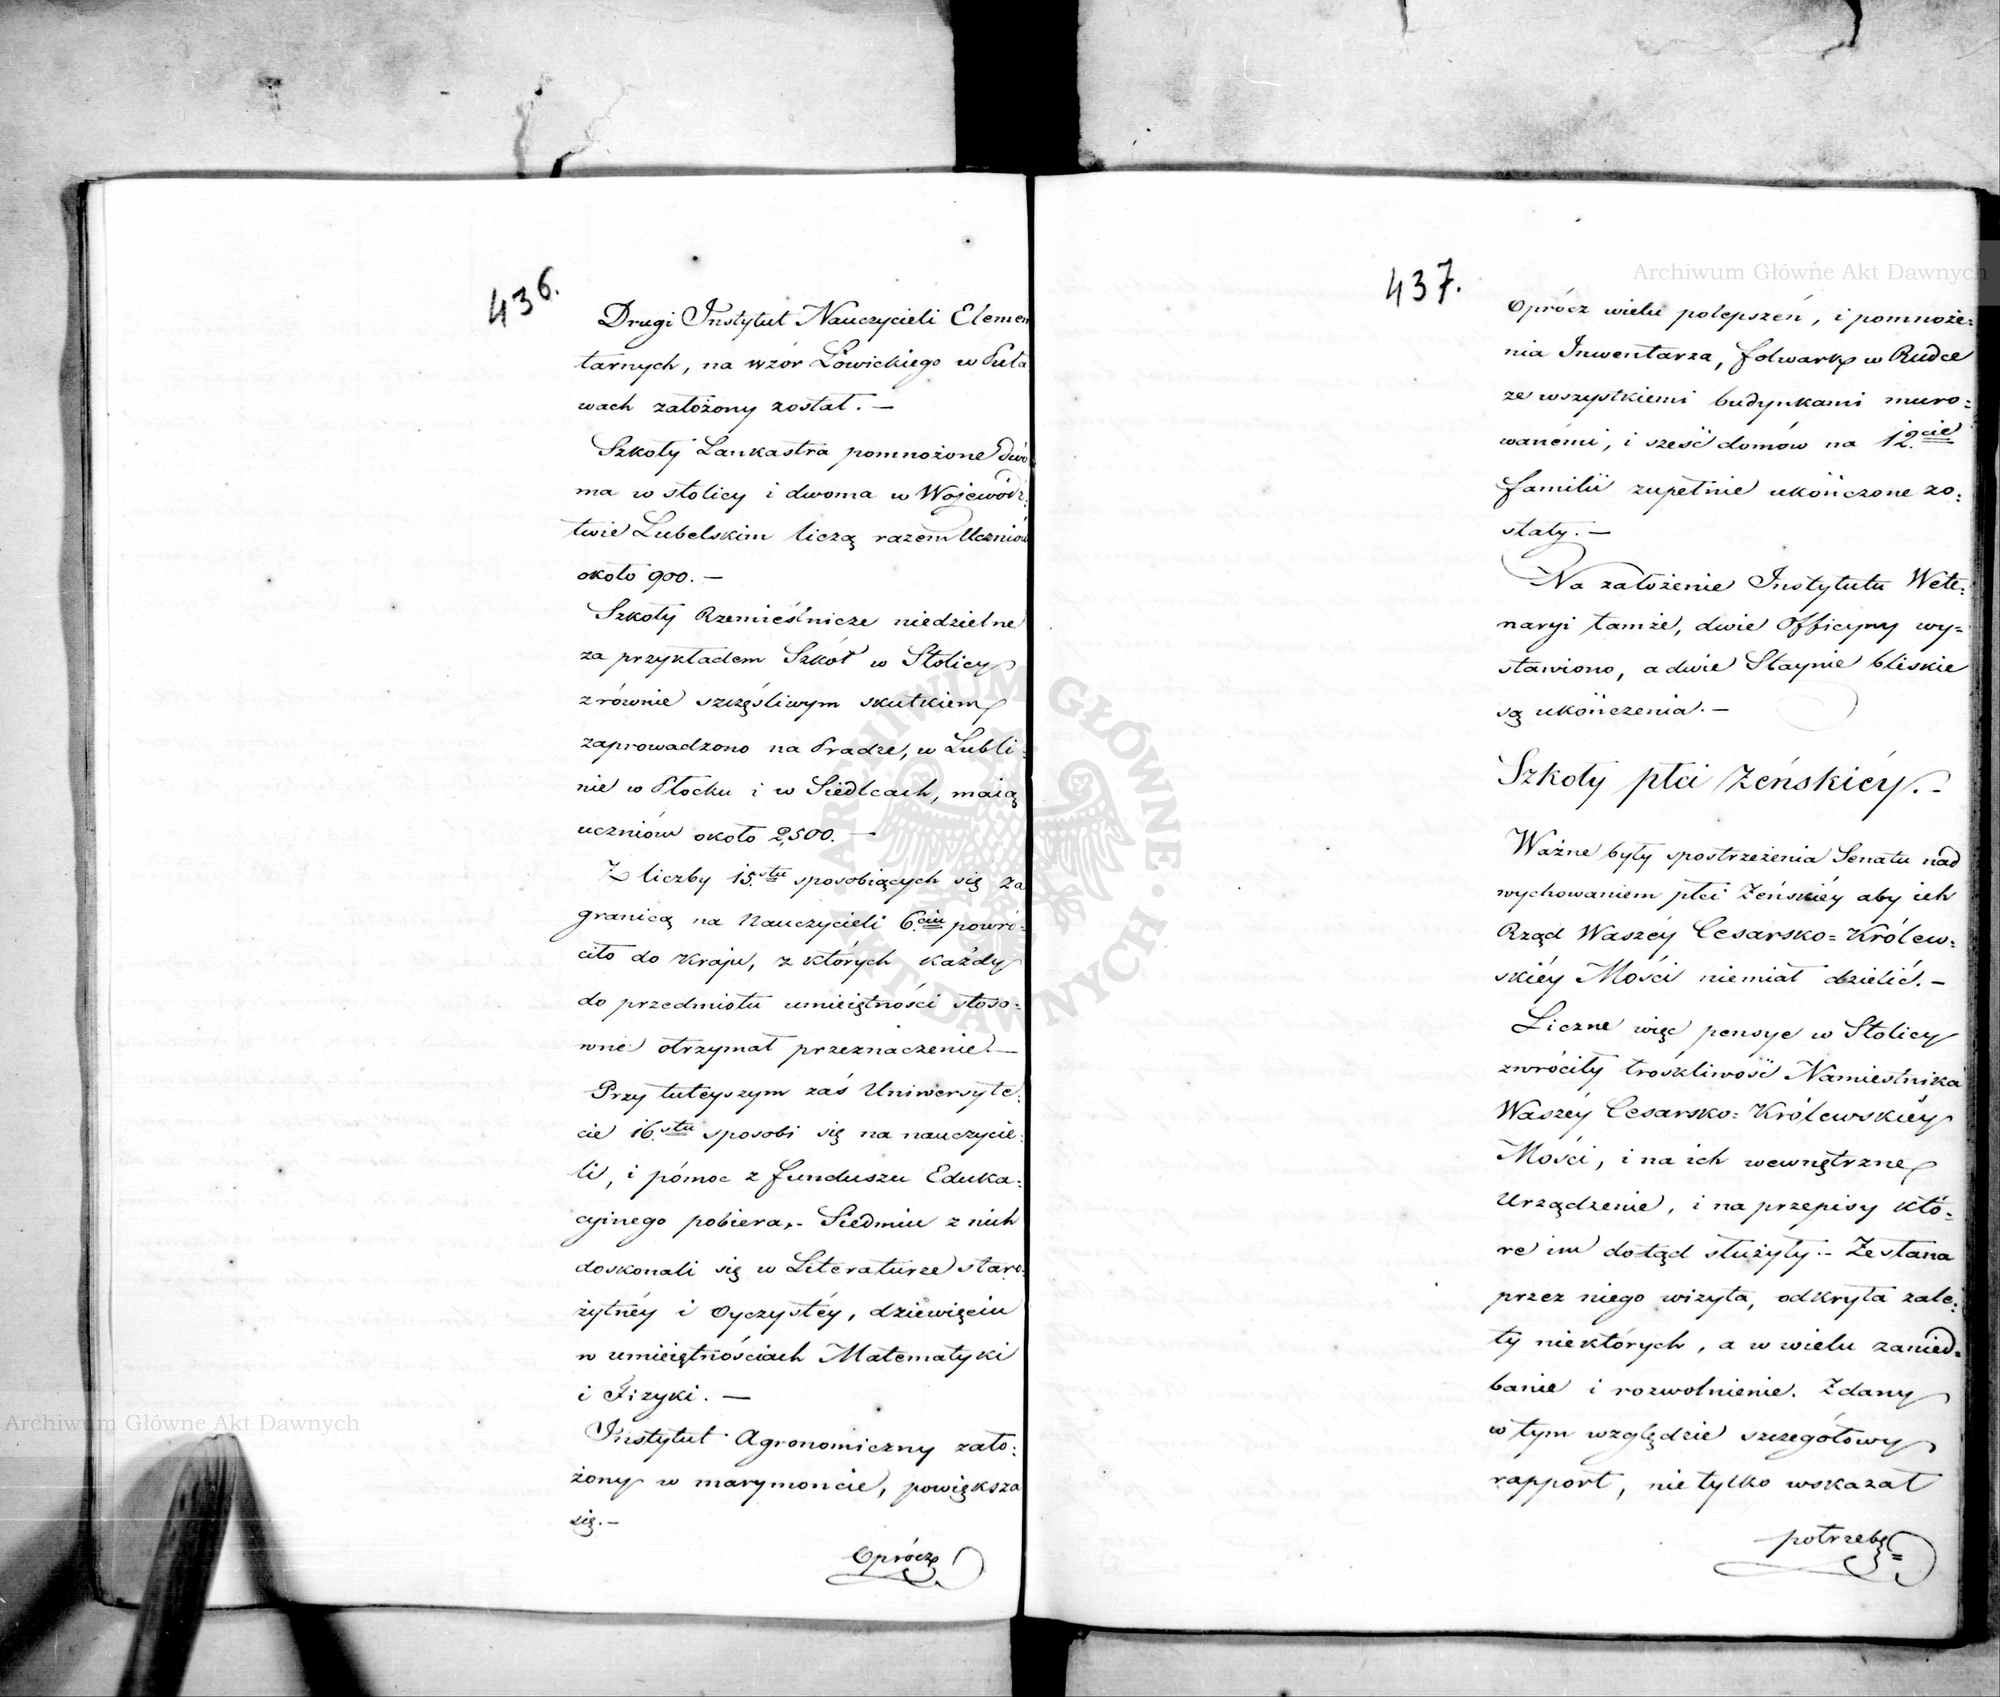 436.
Drugi Instytut Nauczycieli Elemen
tarnych, na wzór Łowickiego w Puła
wach założony został. —
Szkoły Lankastra pomnożone dwo
ma w stolicy i dwoma w Wojewódz:
twie Lubelskim liczą razem Uczniów
około 900. —
Szkoły Rzemieślnicze niedzielne
za przykładem Szkół w Stolicy
z równie szczęśliwym skutkiem
zaprowadzono na Pradze, w Lubli:
nie w Płocku i w Siedlcach, maią
uczniów około 2,500. —
Z liczby 15.stu sposobiących się za
granicą na Nauczycieli 6.ciu powró:
ciło do Kraju, z których każdy
do przedmiotu umieiętności stoso:
wne otrzymał przeznaczenie. —
Przy tuteyszym zaś Uniwersyte:
cie 16.stu sposobi się na nauczycie:
li, i pómoc z funduszu Eduka:
cyinego pobiera. - Siedmiu z nich
doskonali się w Literaturze staro:
żytnéy i Oyczystéy, dziewięciu
w umieiętnościach Matematyki
i Fizyki. —
Instytut Agronomiczny zało:
żony w marymoncie, powiększa
się. —
Oprócz
437.
Oprócz wielu polepszeń, i pomnoże:
nia Inwentarza, folwark w Rudce
ze wszystkiemi budynkami muro:
wanémi, i sześć domów na 12.cie
familii zupełnie ukończone zo:
stały. —
Na założenie Instytutu Wete:
naryi tamże, dwie Officyny wy=
stawiono, a dwie Staynie bliskie
są ukończenia. —
Szkoły płci Żeńskiéy. -
Ważne były spostrzeżenia Senatu nad
wychowaniem płci Żeńskiéy aby ich
Rząd Waszéy Cesarsko=Królew:
skiéy Mości niemiał dzielić. —
Liczne więc pensye w Stolicy
zwróciły troskliwość Namiestnika
Waszéy Cesarsko=Królewskiéy
Mości, i na ich wewnętrzne
Urządzenie, i na przepisy któ:
re im dotąd służyły. - Zesłana
przez niego wizyta, odkryła zale:
ty niektórych, a w wielu zanied=
banie i rozwolnienie. Zdany
w tym względzie szczegółowy
rapport, nie tylko wskazał
potrzebę=
Archiwum Główne Akt Dawnych
Archiwum Główne Akt Dawnych
ARCHIWUM GŁÓWNE AKT DAWNYCH